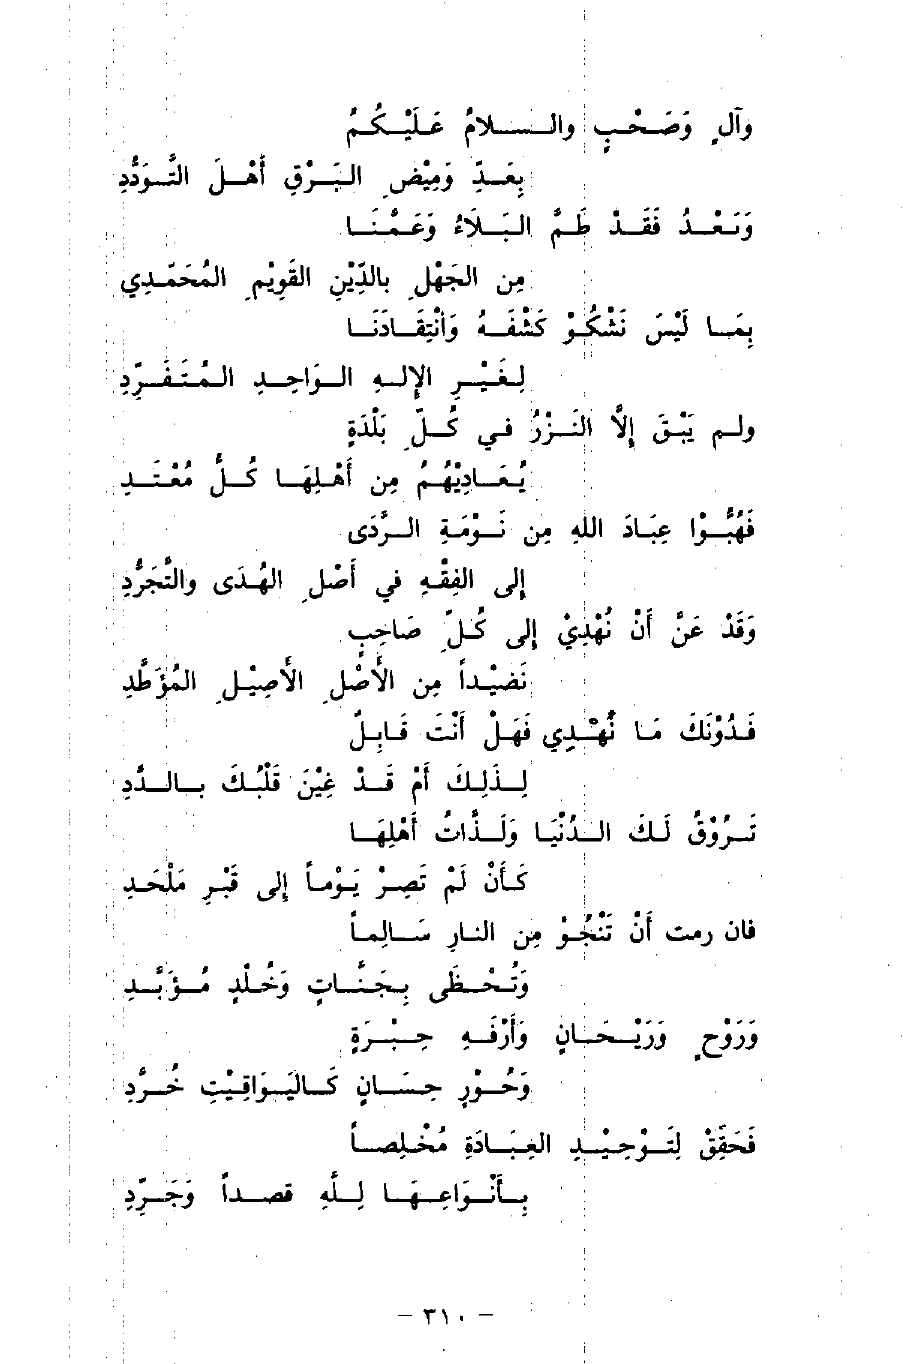 وآلٍ وَصَحْبٍ والسلامُ عَلَيْكُمُ
بِعَدِّ وَمِيْضِ البَرْقِ أَهْلَ التَّوَدُّدِ
وَبَعْدُ فَقَدْ طَمَّ البَلَاءُ وَعَمَّنَا
مِن الجَهْلِ بالدِّيْنِ القَوِيْمِ المُحَمَّدِي
بِمَا لَيْسَ نَشْكُوْ كَشْفَهُ وَانْتِقَادَنَا
لِغَيْرِ الإِلهِ الوَاحِدِ المُتَفَرِّدِ
ولم يَبْقَ إِلَّا النَزْرُ في كُلِّ بَلْدَةٍ
يُعَادِيْهُمُ مِن أَهْلِهَا كُلُّ مُعْتَدِ
فَهُبُّوْا عِبَادَ اللهِ مِن نَوْمَةِ الرَّدَى
إلى الفِقْهِ في أَصْلِ الهُدَى والتَّجَرُّدِ
وَقَدْ عَنَّ أَنْ نُهْدِيْ إلى كُلِّ صَاحِبٍ
نَضِيْداً مِن الأَصْلِ الأَصِيْلِ المُؤَطَّدِ
فَدُوْنَكَ مَا نُهْدِي فَهَلْ أَنْتَ قَابِلٌ
لِذَلِكَ أَمْ قَدْ غِيْنَ قَلْبُكَ بالدَّدِ
تَرُوْقُ لَكَ الدُنْيَا وَلَذَّاتُ أَهْلِهَا
كَأَنْ لَمْ تَصِرْ يَوْماً إلى قَبْرِ مَلْحَدِ
فان رمت أَنْ تَنْجُوْ مِن النارِ سَالِماً
وَتُحْظَى بِجَنَّاتٍ وَخُلْدٍ مُؤَبَّدِ
وَرَوْحٍ وَرَيْحَانٍ وَأَرْفَهِ حِبْرَةٍ
وَحُوْرٍ حِسَانٍ كَاليَوَاقِيْتِ خُرَّدِ
فَحَقِّقْ لِتَوْحِيْدِ العِبَادَةِ مُخْلِصاً
بِأَنْوَاعِهَا لِلَّهِ قصداً وَجَرِّدِ
– ٣١٠ –